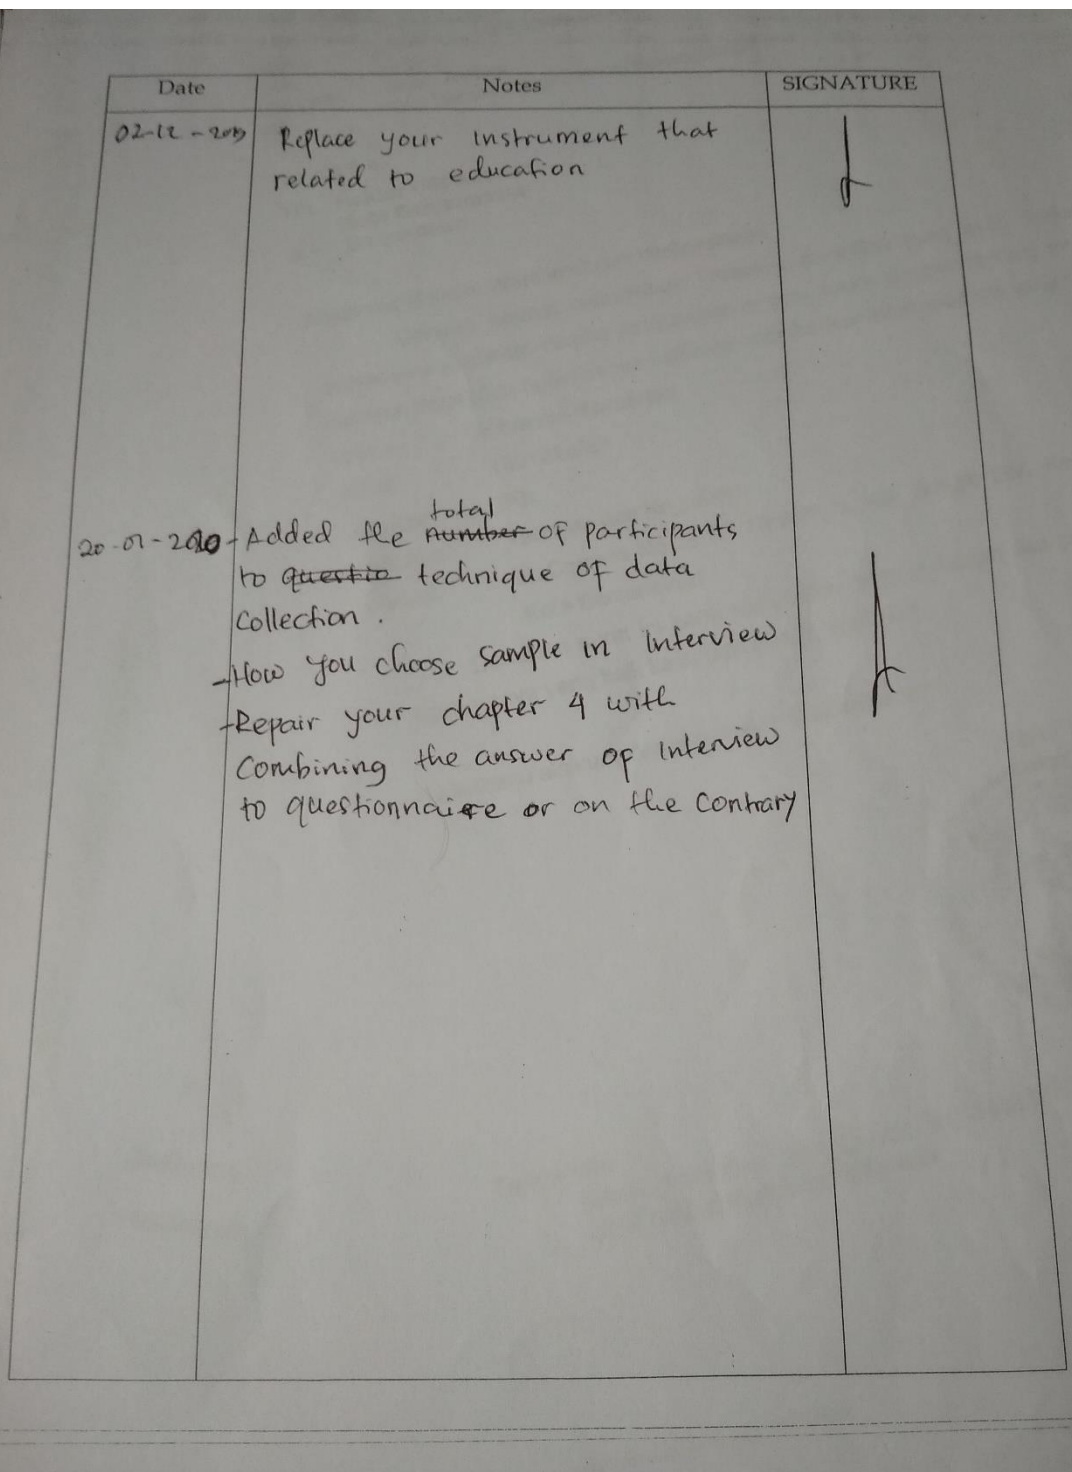 Date Notes SIGNATURE
02-12-2019 Replace your instrument that
related to education
total
20-01-2020 - Added the number of participants
to questio technique of data
Collection.
- How you choose sample in Interview
- Repair your chapter 4 with
Combining the answer of interview
to questionnaire or on the Contrary